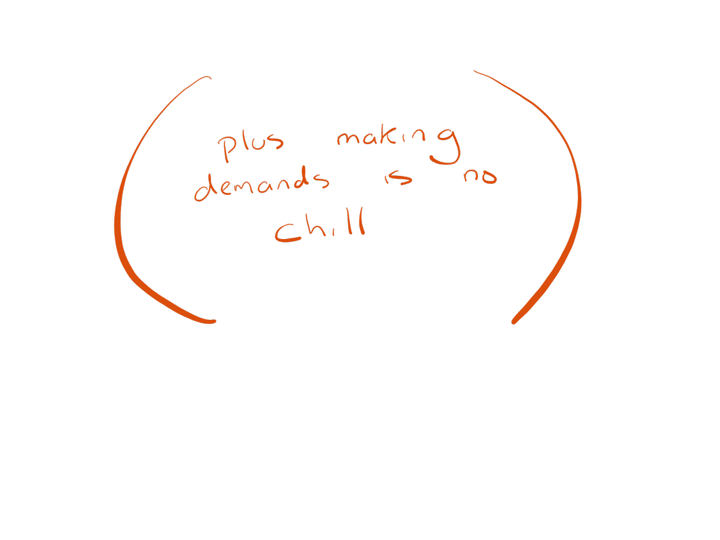 (plus making
demands is no
chill)